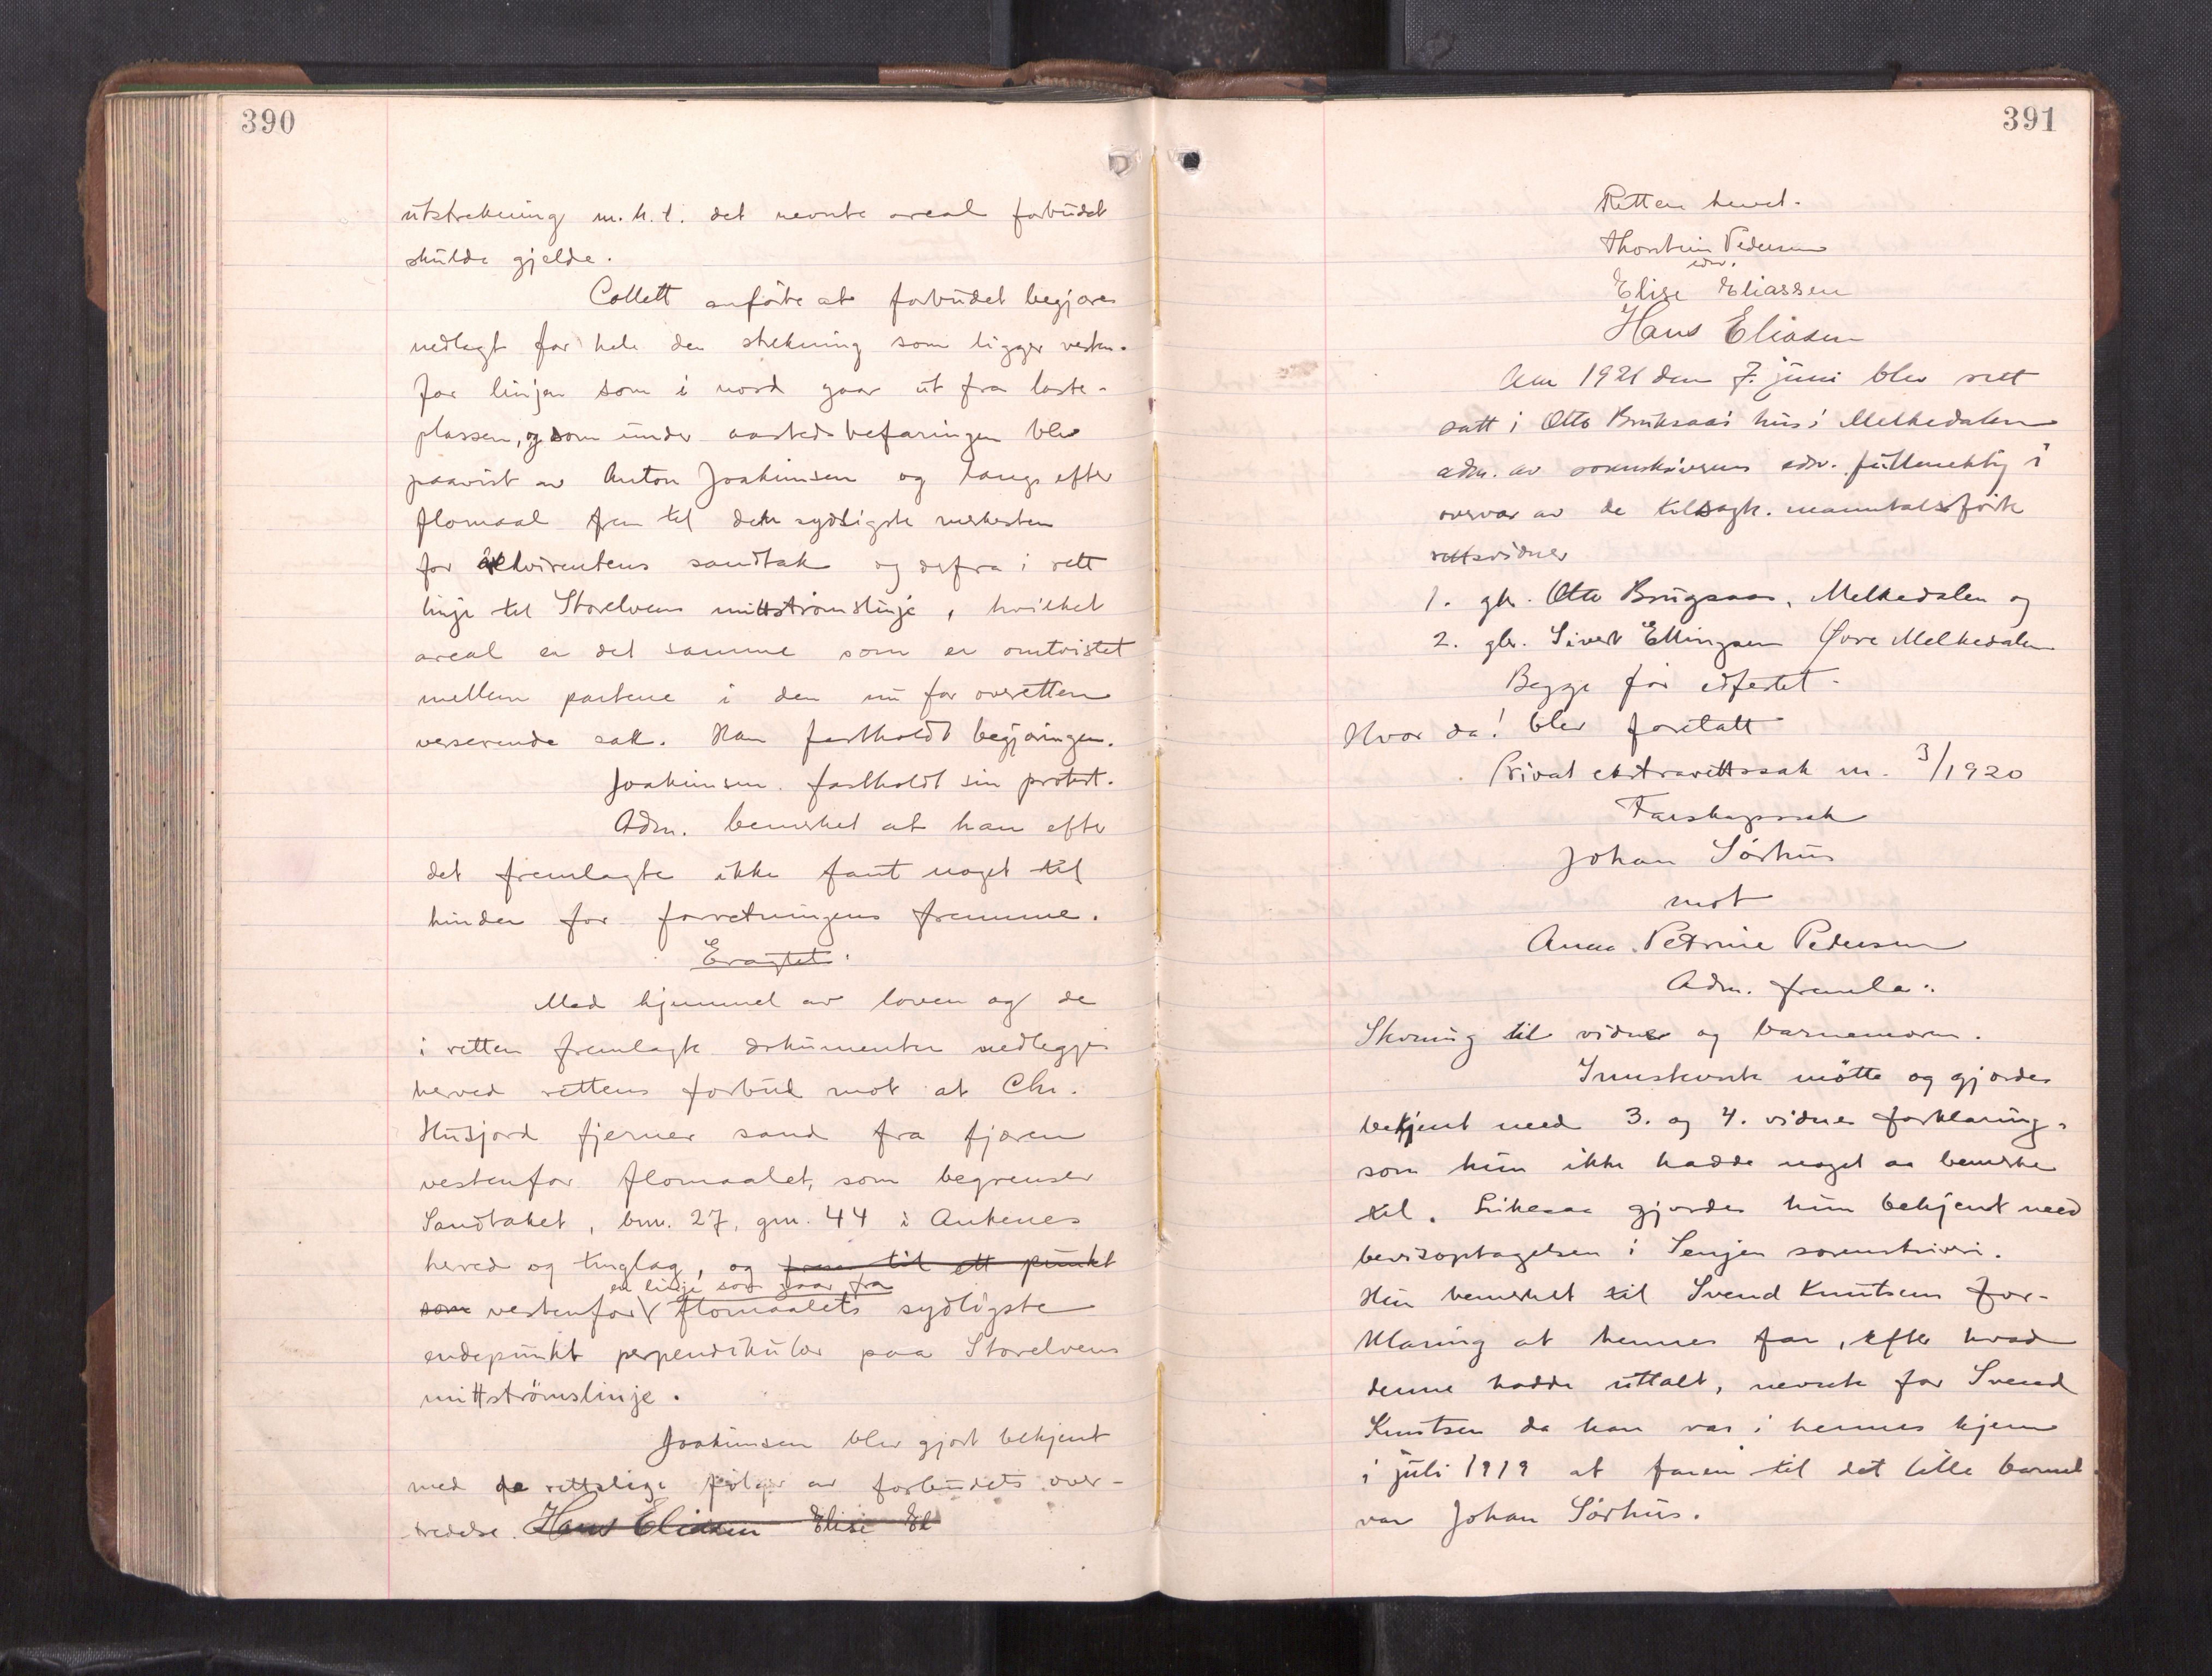 390
utstrekning m.h.t. det nevnte areal forbudet
skulde gjelde.
Collett anførte at forbudet begjæres
nedlagt for hele den strekning som ligger vesten-
for linjen som i nord gaar ut fra laste-
plassen, og som under aastedsbefaringen blev
paavist av Anton Joakimsen og langs efter
flomaal frem til den sydligste merkesten
for rekvirentens sandtak og derfra i rett
linje til Storelvens mittstrømslinje, hvilket
areal er det samme som er omtvistet
mellem partene i den nu for overretten
verserende sak. Han fastholdt begjæringen.
Joakimsen fastholdt sin protest.
Adm. bemerket at han efter
det fremlagte ikke fant noget til
hinder for forretningens fremme.
Eragtet:
Med hjemmel av loven og de
i retten fremlagte dokumenter nedlegges
herved rettens forbud mot at Chr.
Husjord fjerner sand fra fjæren
vestenfor flomaalet, som begrenser
Sandtaket, bnr. 27, gnr. 44 i Ankenes
herred og tinglag, og frem til ett punkt
en linje som gaar fra
som vestenfor flomaalets sydligste
endepunkt perpendikulær paa Storelvens
mittstrømslinje.
Joakimsen blev gjort bekjent
med de rettslige følger av forbudets over-
tredelse. Hans Eliasen Elise El
391
Retten hevet.
Thorstein Pedersen
edsv.
Elise Eliassen
Hans Eliasen
Aar 1921 den 7. juni blev rett
satt i Otto Bruksaas hus i Melkedalen
adm. av sorenskriverens edsv. fullmektig i
overvær av de tilsagte. manntalsførte
rettsvidner
1. gbr. Otto Brugsaas, Melkedalen og
2. gbr. Sivert Ellingsen Øvre Melkedalen
Begge før edfestet.
Hvor da! blev foretatt
Privat ekstrarettssak nr. 3/1920
Farskapssak
Johan Sørhus
mot
Anna Petrine Pedersen
Adm. fremla:
Skvning til vidner og barnemoren.
Innstevnte møtte og gjordes
bekjent med 3. og 4. vidnes forklaring,
som hun ikke hadde noget aa bemerke
til. Likesaa gjordes hun bekjent med
bevisoptagelsen i Senjen sorenskriveri.
Hun bemerket til Svend Knutsens for-
klaring at hennes far, efter hvad
denne hadde uttalt, nevnte for Svend
Knutsen da han var i hennes hjem
i juli 1919 at faren til det lille barnet
var Johan Sørhus.